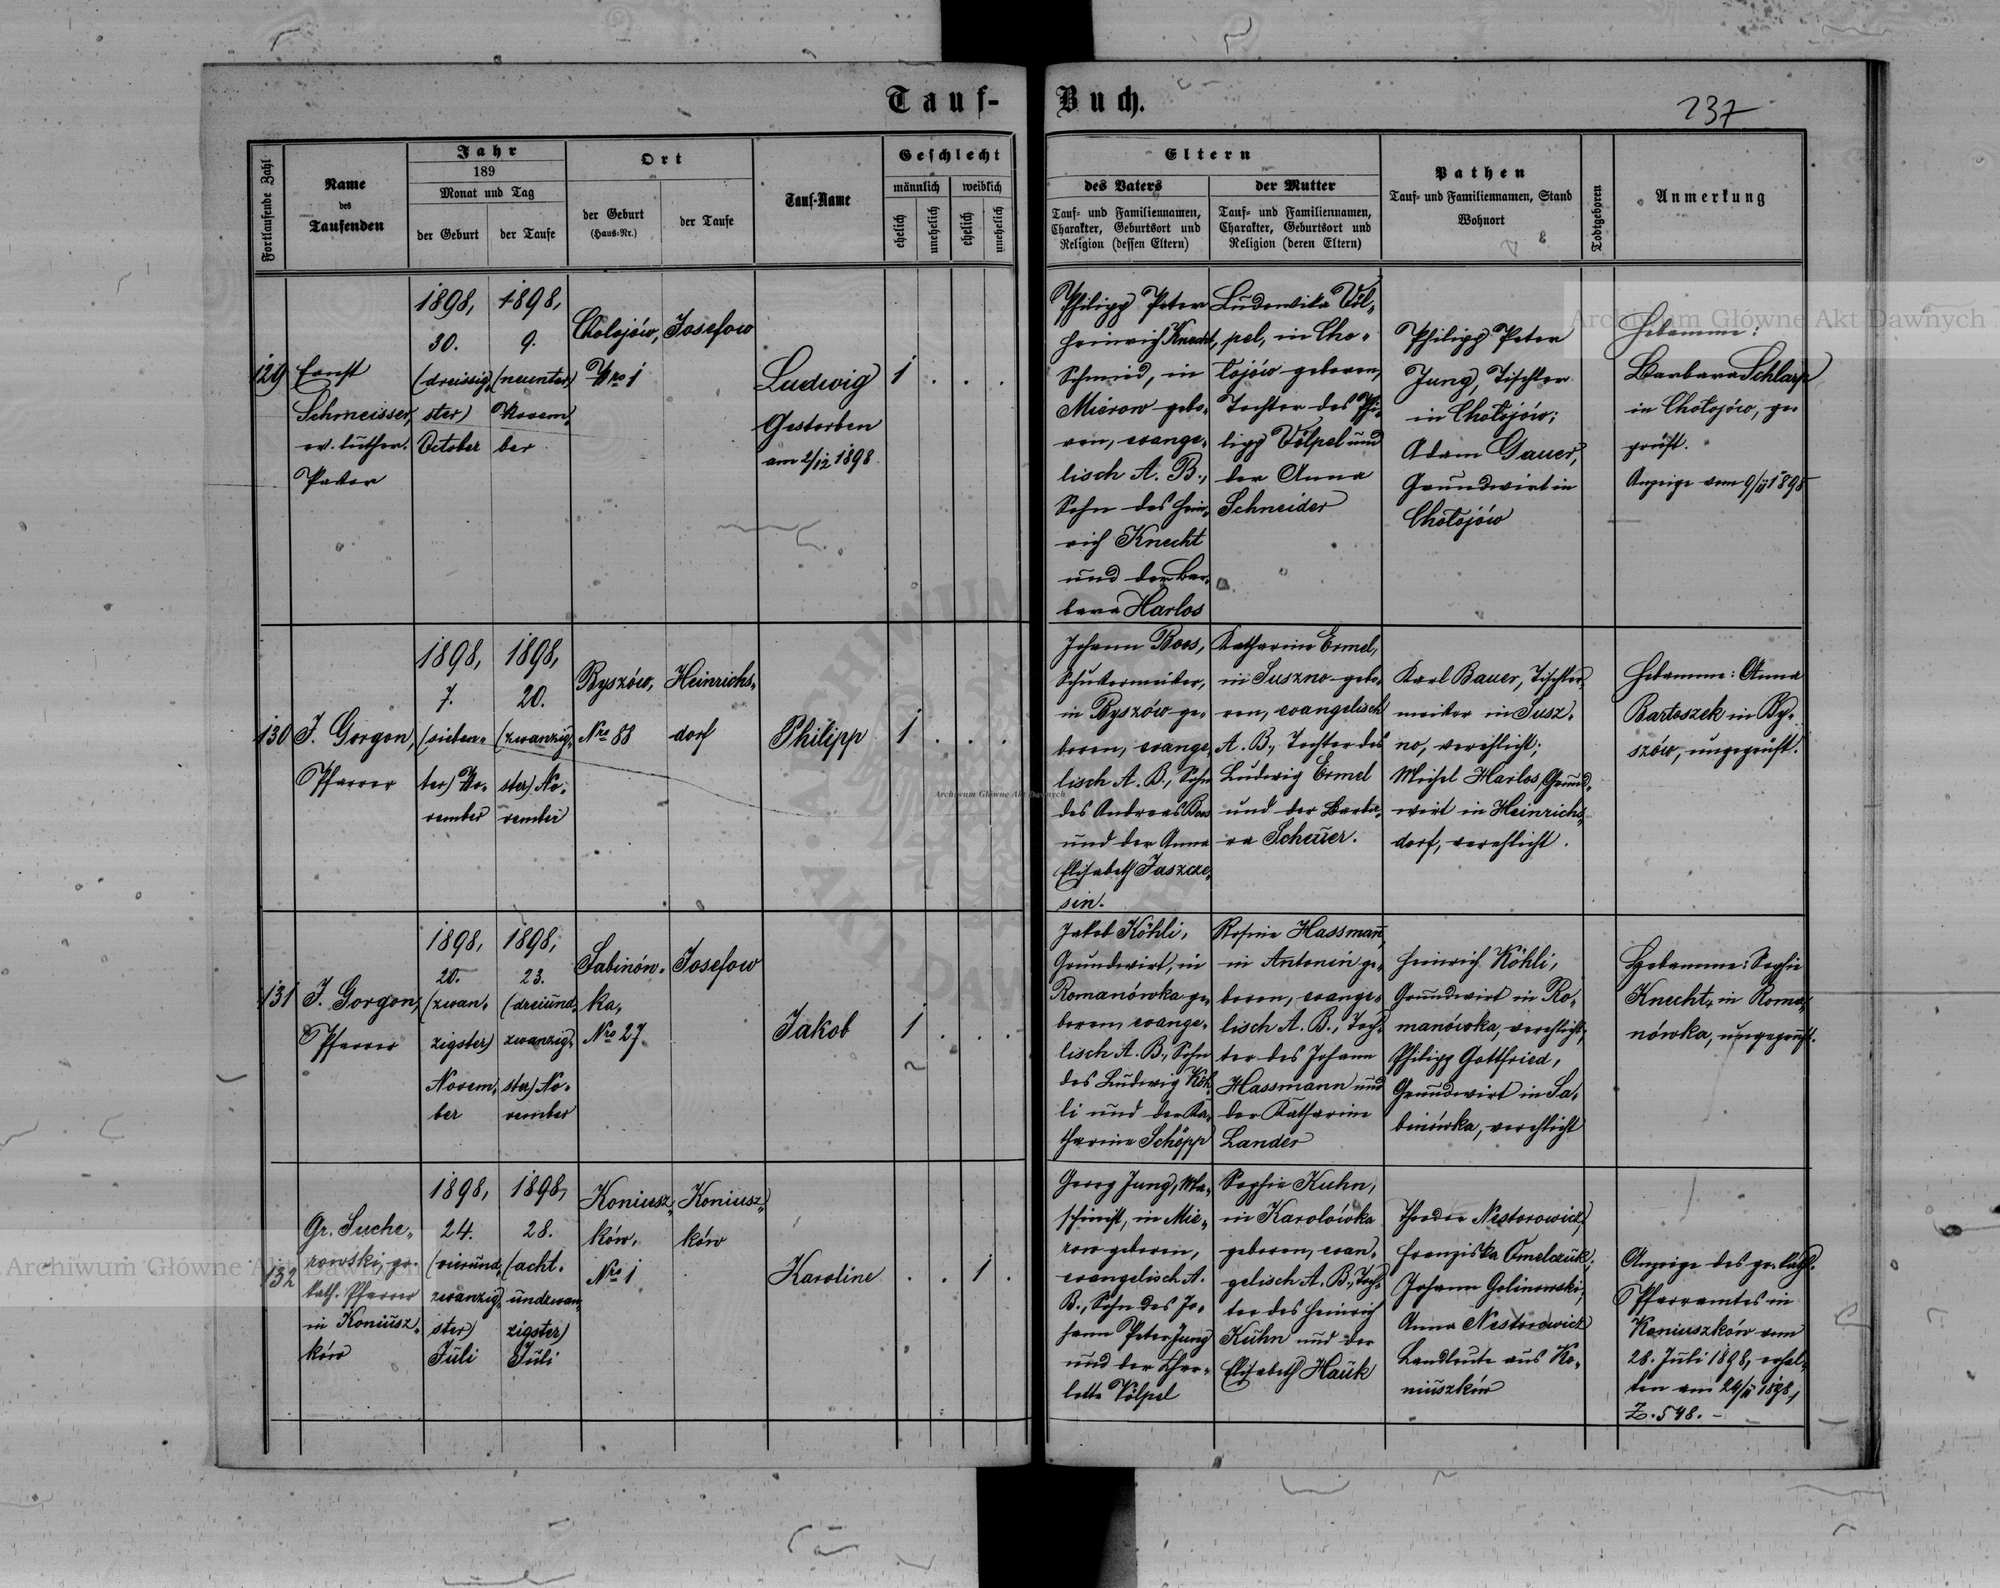 Tauf-
Buch.
237
Fortlaufende Zahl
Name
des
Taufenden
Jahr
189
Monat und Tag
der Geburt
der Taufe
Ort
der Geburt
(Haus-Nr.)
der Taufe
Tauf-Name
Geschlecht
männlich
weiblich
ehelich
unehelich
ehelich
unehelich
Eltern
des Vaters
Tauf- und Familiennamen,
Charakter, Geburtsort und
Religion (dessen Eltern)
der Mutter
Tauf- und Familiennamen,
Charakter, Geburtsort und
Religion (deren Eltern)
Pathen
Tauf- und Familiennamen, Stand
Wohnort
Todtgeboren
Anmerkung
129
Ernst
Schmeisser,
ev. luther.
Pastor
1898,
30.
(dreissig-
ster)
October
1898,
9.
(neunter)
Novem-
ber
Cholojów,
Nro 1
Josefow
Ludwig
Gestorben
am 2/12 1898
1
Philipp Peter
Heinrich Knecht,
Schmied, in
Mierow gebo-
ren, evange-
lisch A. B.,
Sohn des Hein-
rich Knecht
und der Bar-
bara Harlos
Ludowika Völ-
pel, in Cho-
lojów geboren,
Tochter des Phi-
lipp Völpel und
der Anna
Schneider
Philipp Peter
Jung, Tischler
in Cholojów;
Adam Gauer,
Grundwirt in
Cholojów
Hebamme:
Barbara Schlarp
in Cholojów, ge-
prüft.
Anzeige vom 9/11 1898
130
J. Gorgon,
Pfarrer
1898,
7.
(sieben-
ter) No-
vember
1898,
20.
(zwanzig-
ster) No-
vember
Byszów,
Nro 88
Heinrichs-
dorf
Philipp
1
Johann Boos,
Schustermeister,
in Byszów ge-
boren, evange-
lisch A. B., Sohn
des Andreas Boos
und der Anna
Elisabeth Jaszcze-
sin.
Katharine Ermel,
in Suszno gebo-
ren, evangelisch
A. B., Tochter des
Ludwig Ermel
und der Barba-
ra Scheuer.
Karl Bauer, Tischler-
meister in Susz-
no, verehlicht;
Michel Harlos, Grund-
wirt in Heinrichs-
dorf, verehlicht.
Hebamme: Anna
Bartoszek in By-
szów, ungeprüft.
131
J. Gorgon,
Pfarrer
1898,
20.
(zwan-
zigster)
Novem-
ber
1898,
23.
(dreiund-
zwanzig-
ster) No-
vember
Sabinów-
ka,
Nro 27
Josefow
Jakob
1
Jakob Köhli,
Grundwirt, in
Romanówka ge-
boren, evange-
lisch A. B., Sohn
des Ludwig Köh-
li und der Ka-
tharine Schöpp
Rosine Hassmann,
in Antonin ge-
boren, evange-
lisch A. B., Toch-
ter des Johann
Hassmann und
der Katharine
Lander
Heinrich Köhli,
Grundwirt in Ro-
manówka, verehlicht;
Philipp Gottfried,
Grundwirt in Sa-
binówka, verehlicht
Hebamme: Sophie
Knecht, in Roma-
nówka, ungeprüft.
132
Gr. Suche-
rowski, gr.
kath. Pfarrer
in Koniusz-
ków
1898,
24.
(vierund-
zwanzig-
ster)
Juli
1898,
28.
(acht-
undzwan-
zigster)
Juli
Koniusz-
ków,
Nro 1
Koniusz-
ków
Karoline
1
Georg Jung, Ma-
schinist, in Mie-
row geboren,
evangelisch A.
B., Sohn des Jo-
hann Peter Jung
und der Char-
lotte Völpel
Sophie Kuhn,
in Karolówka
geboren, evan-
gelisch A. B., Toch-
ter des Heinrich
Kuhn und der
Elisabeth Hauk
Theodor Nestorowicz,
Franziska Omelczuk;
Johann Golinowski,
Anna Nestorowicz
Landleute aus Ko-
niuszków
Anzeige des gr. kath.
Pfarramtes in
Koniuszków vom
28. Juli 1898, erhal-
ten am 24/11 1898,
Z. 548. –
Archiwum Główne Akt Dawnych
Archiwum Główne Akt Dawnych
Archiwum Główne Akt Dawnych